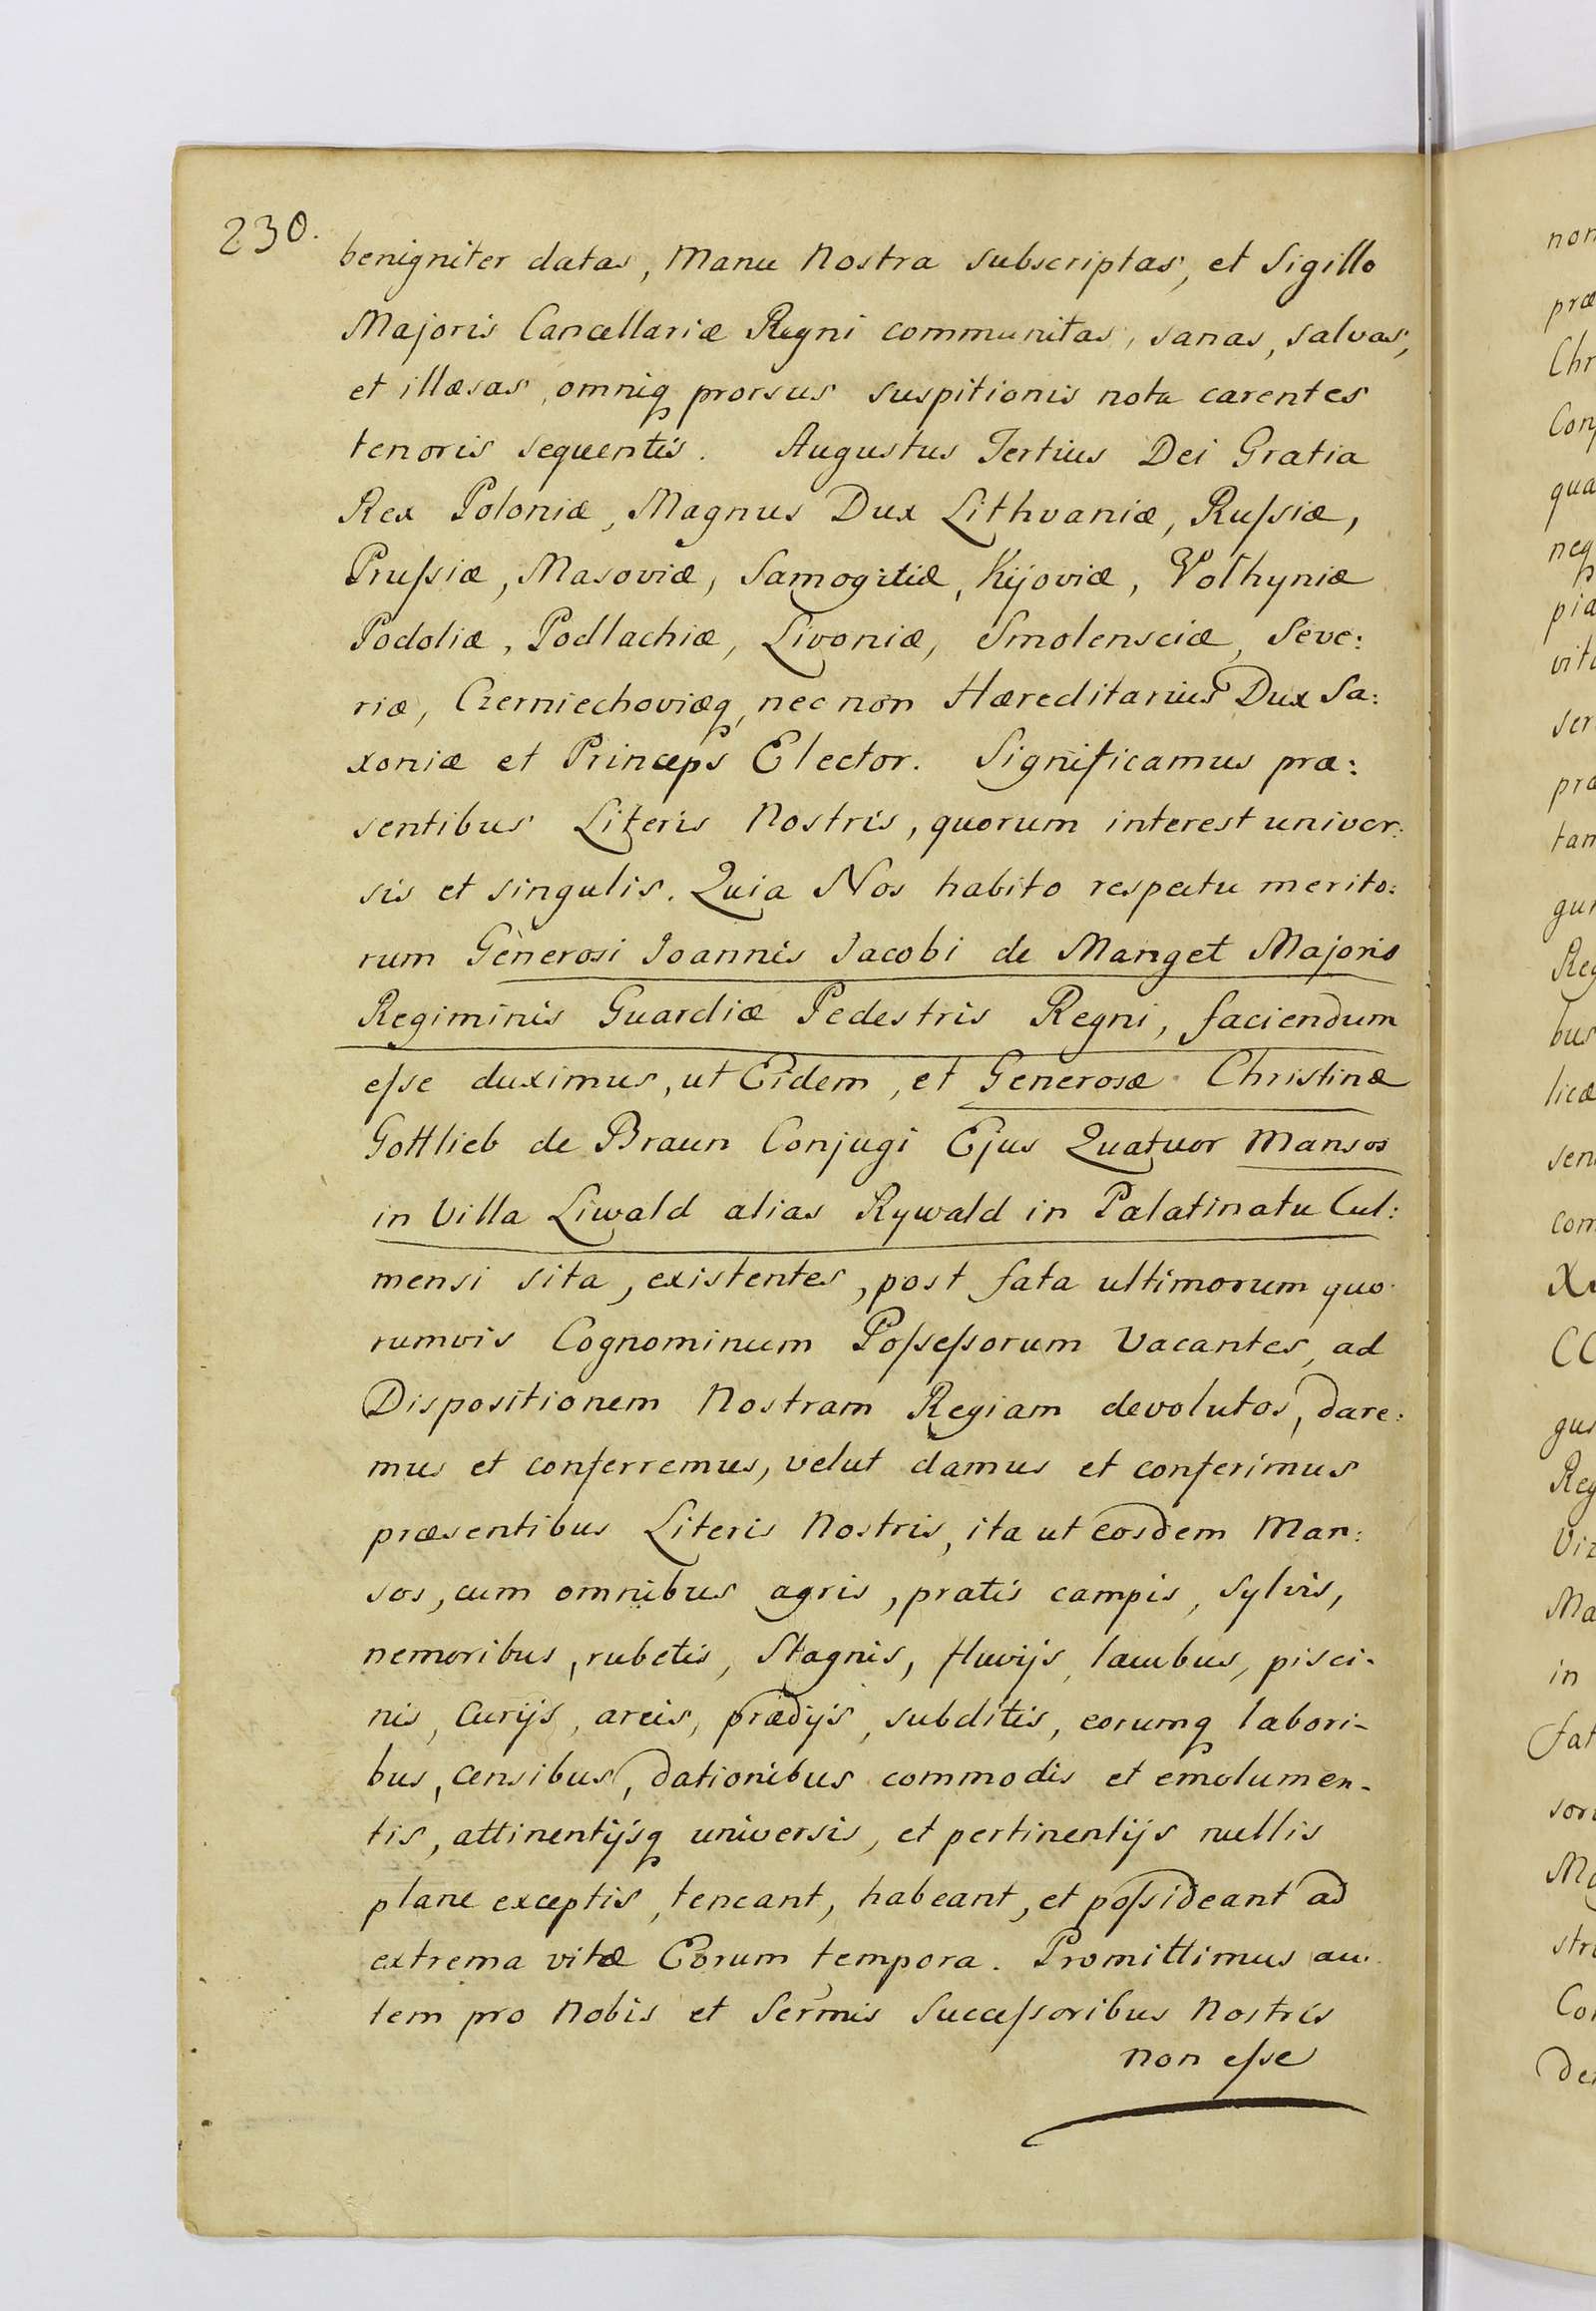 230.
benigniter datas, Manu Nostra subscriptas, et Sigillo
Majoris Cancellariæ Regni communitas, sanas, salvas,
et illæsas, omniq̃ prorsus suspitionis nota carentes
tenoris sequentis. Augustus Tertius Dei Gratia
Rex Poloniæ, Magnus Dux Lithvaniæ, Ruſsiæ,
Pruſsiæ, Masoviæ, Samogitiæ, Kijoviæ, Volhyniæ
Podoliæ, Podlachiæ, Livoniæ, Smolensciæ, Seve:
riæ, Czerniechoviæq̃, nec non Hæreditarius Dux Sa:
xoniæ et Princeps Elector. Significamus præ:
sentibus Literis Nostris, quorum interest univer:
sis et singulis. Quia Nos habito respectu merito:
rum Generosi Joannis Jacobi de Manget Majoris
Regiminis Guardiæ Pedestris Regni, faciendum
eſse duximus, ut Eidem, et Generosæ Christinæ
Gottlieb de Braun Conjugi Ejus Quatuor Mansos
in Villa Liwald alias Rywald in Palatinatu Cul:
mensi sita, existentes, post fata ultimorum quo:
rumvis Cognominum Poſseſsorum Vacantes, ad
Dispositionem Nostram Regiam devolutos, dare:
mus et conferremus, velut damus et conferimus
præsentibus Literis Nostris, ita ut eosdem Man:
sos, cum omnibus agris, pratis campis, sylvis,
nemoribus, rubetis, Stagnis, fluvijs, lacubus, pisci-
nis, Curijs, areis, prædijs, subditis, eorumq̃ labori-
bus, censibus, dationibus commodis et emolumen-
tis, attinentijsq̃ universis, et pertinentijs nullis
plane exceptis, teneant, habeant, et poſsideant ad
extrema vitæ Eorum tempora. Promittimus au:
tem pro Nobis et Sermis Succeſsoribus Nostris
non eſse
non
præ
Chr
Con
qua
neq̃
pia
vit
ser
præ
tan
gur
Reg
bus
licæ
sen
com
CC
gus
Reg
Viz
Ma
in
fat
sor
Ma
str
Con
De